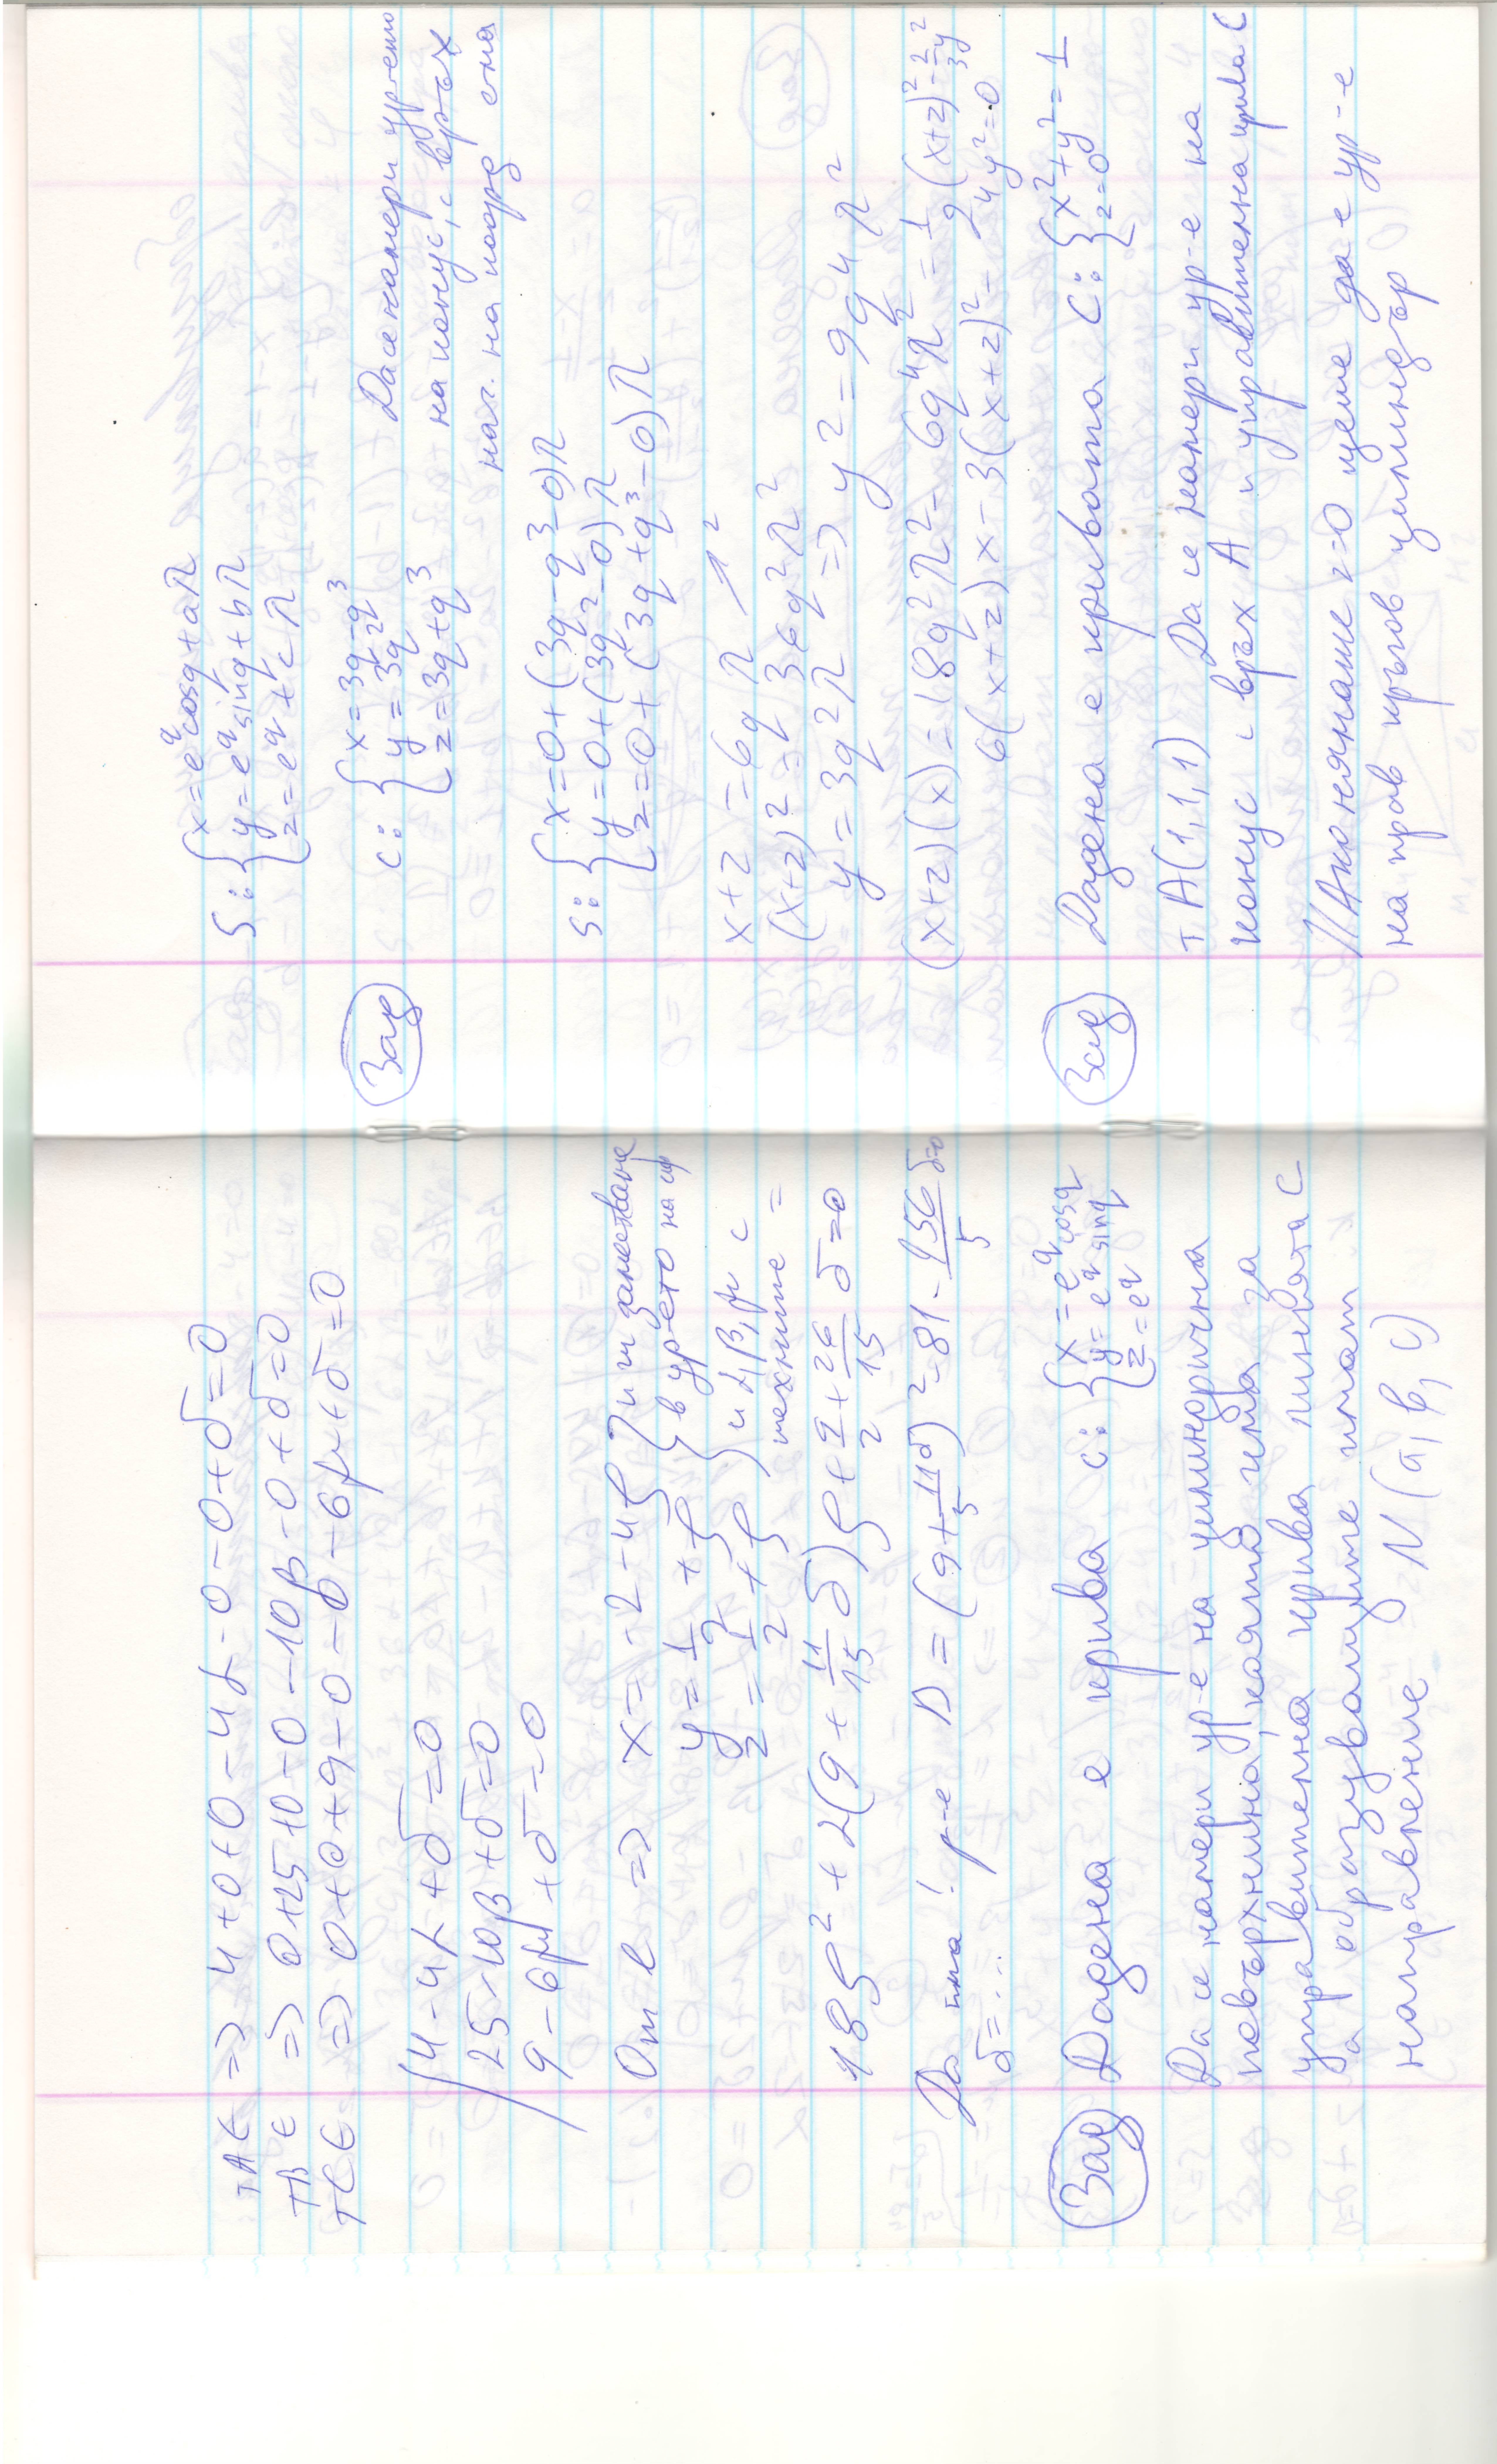 т A ∈ => 4+0+0-4α-0-0+δ=0
т B ∈ => 0+25+0-0-10β-0+δ=0
т C ∈ => 0+0+9-0-0-6μ+δ=0
4-4α+δ=0
25-10β+δ=0
9-6μ+δ=0
От l => x=-2-4ρ и заместване
y=1/2+ρ в ур-ето на сф
z=1/2+ρ и α, β, μ с
техните =
18ρ²+2(9+11/15δ)ρ+9/2+26/15δ=0
Да има! р-е D=(9+11δ/5)²-81-956/5δ=0
δ=...
Зад Дадена е крива c: {x=e^q cosq
y=e^q sinq
z=e^q
Да се намери ур-е на цилиндрична
повърхнина, която има за
управителна крива линията C
а образуващите имат
направление N(a, b, c)
S: {x=e^q cosq+aλ
y=e^q sinq+bλ
z=e^q+cλ
Зад c: {x=3q-q³ Да се намери ур-ению
y=3q² на конус, с връх
z=3q+q³ нач. на коорд с-ма
S: {x=0+(3q-q³-0)λ
y=0+(3q²-0)λ
z=0+(3q+q³-0)λ
x+z=6qλ ↗²
(x+z)²=36q²λ²
y=3q²λ => y²=9q⁴λ²
(x+z)(x)=18q²λ²-6q⁴λ²=1/2(x+z)²-2/3y²
6(x+z)x-3(x+z)²-4y²=0
Зад Дадена е кривата C: {x²+y²=1
z=0
т A(1,1,1) Да се намери ур-е на
конус с връх A и управителна крива C
// Ако нямаше z=0 щеше да е ур-е
на прав кръгов цилиндър